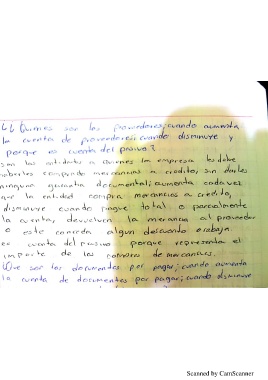 ¿Quienes son los proveedores; cuando aumenta
la cuenta de proveedores; cuando disminuye y
porque es cuenta del pasivo?
son las entidades a Quienes la empresa les debe
por comprado mercancias a credito, sin darles
ninguna garantia documental; aumenta cada vez
que la entidad compra mercancias a credito,
disminuye cuando pague total o parcialmente
la cuenta, devuelven la mercancia al proveedor
o este conceda algun descuento o rebaja.
es cuenta del pasivo porque representa el
importe de las de mercancias.
Que son los documentos por pagar; cuando aumenta
la cuenta de documentos por pagar; cuando disminuye
Scanned by CamScanner